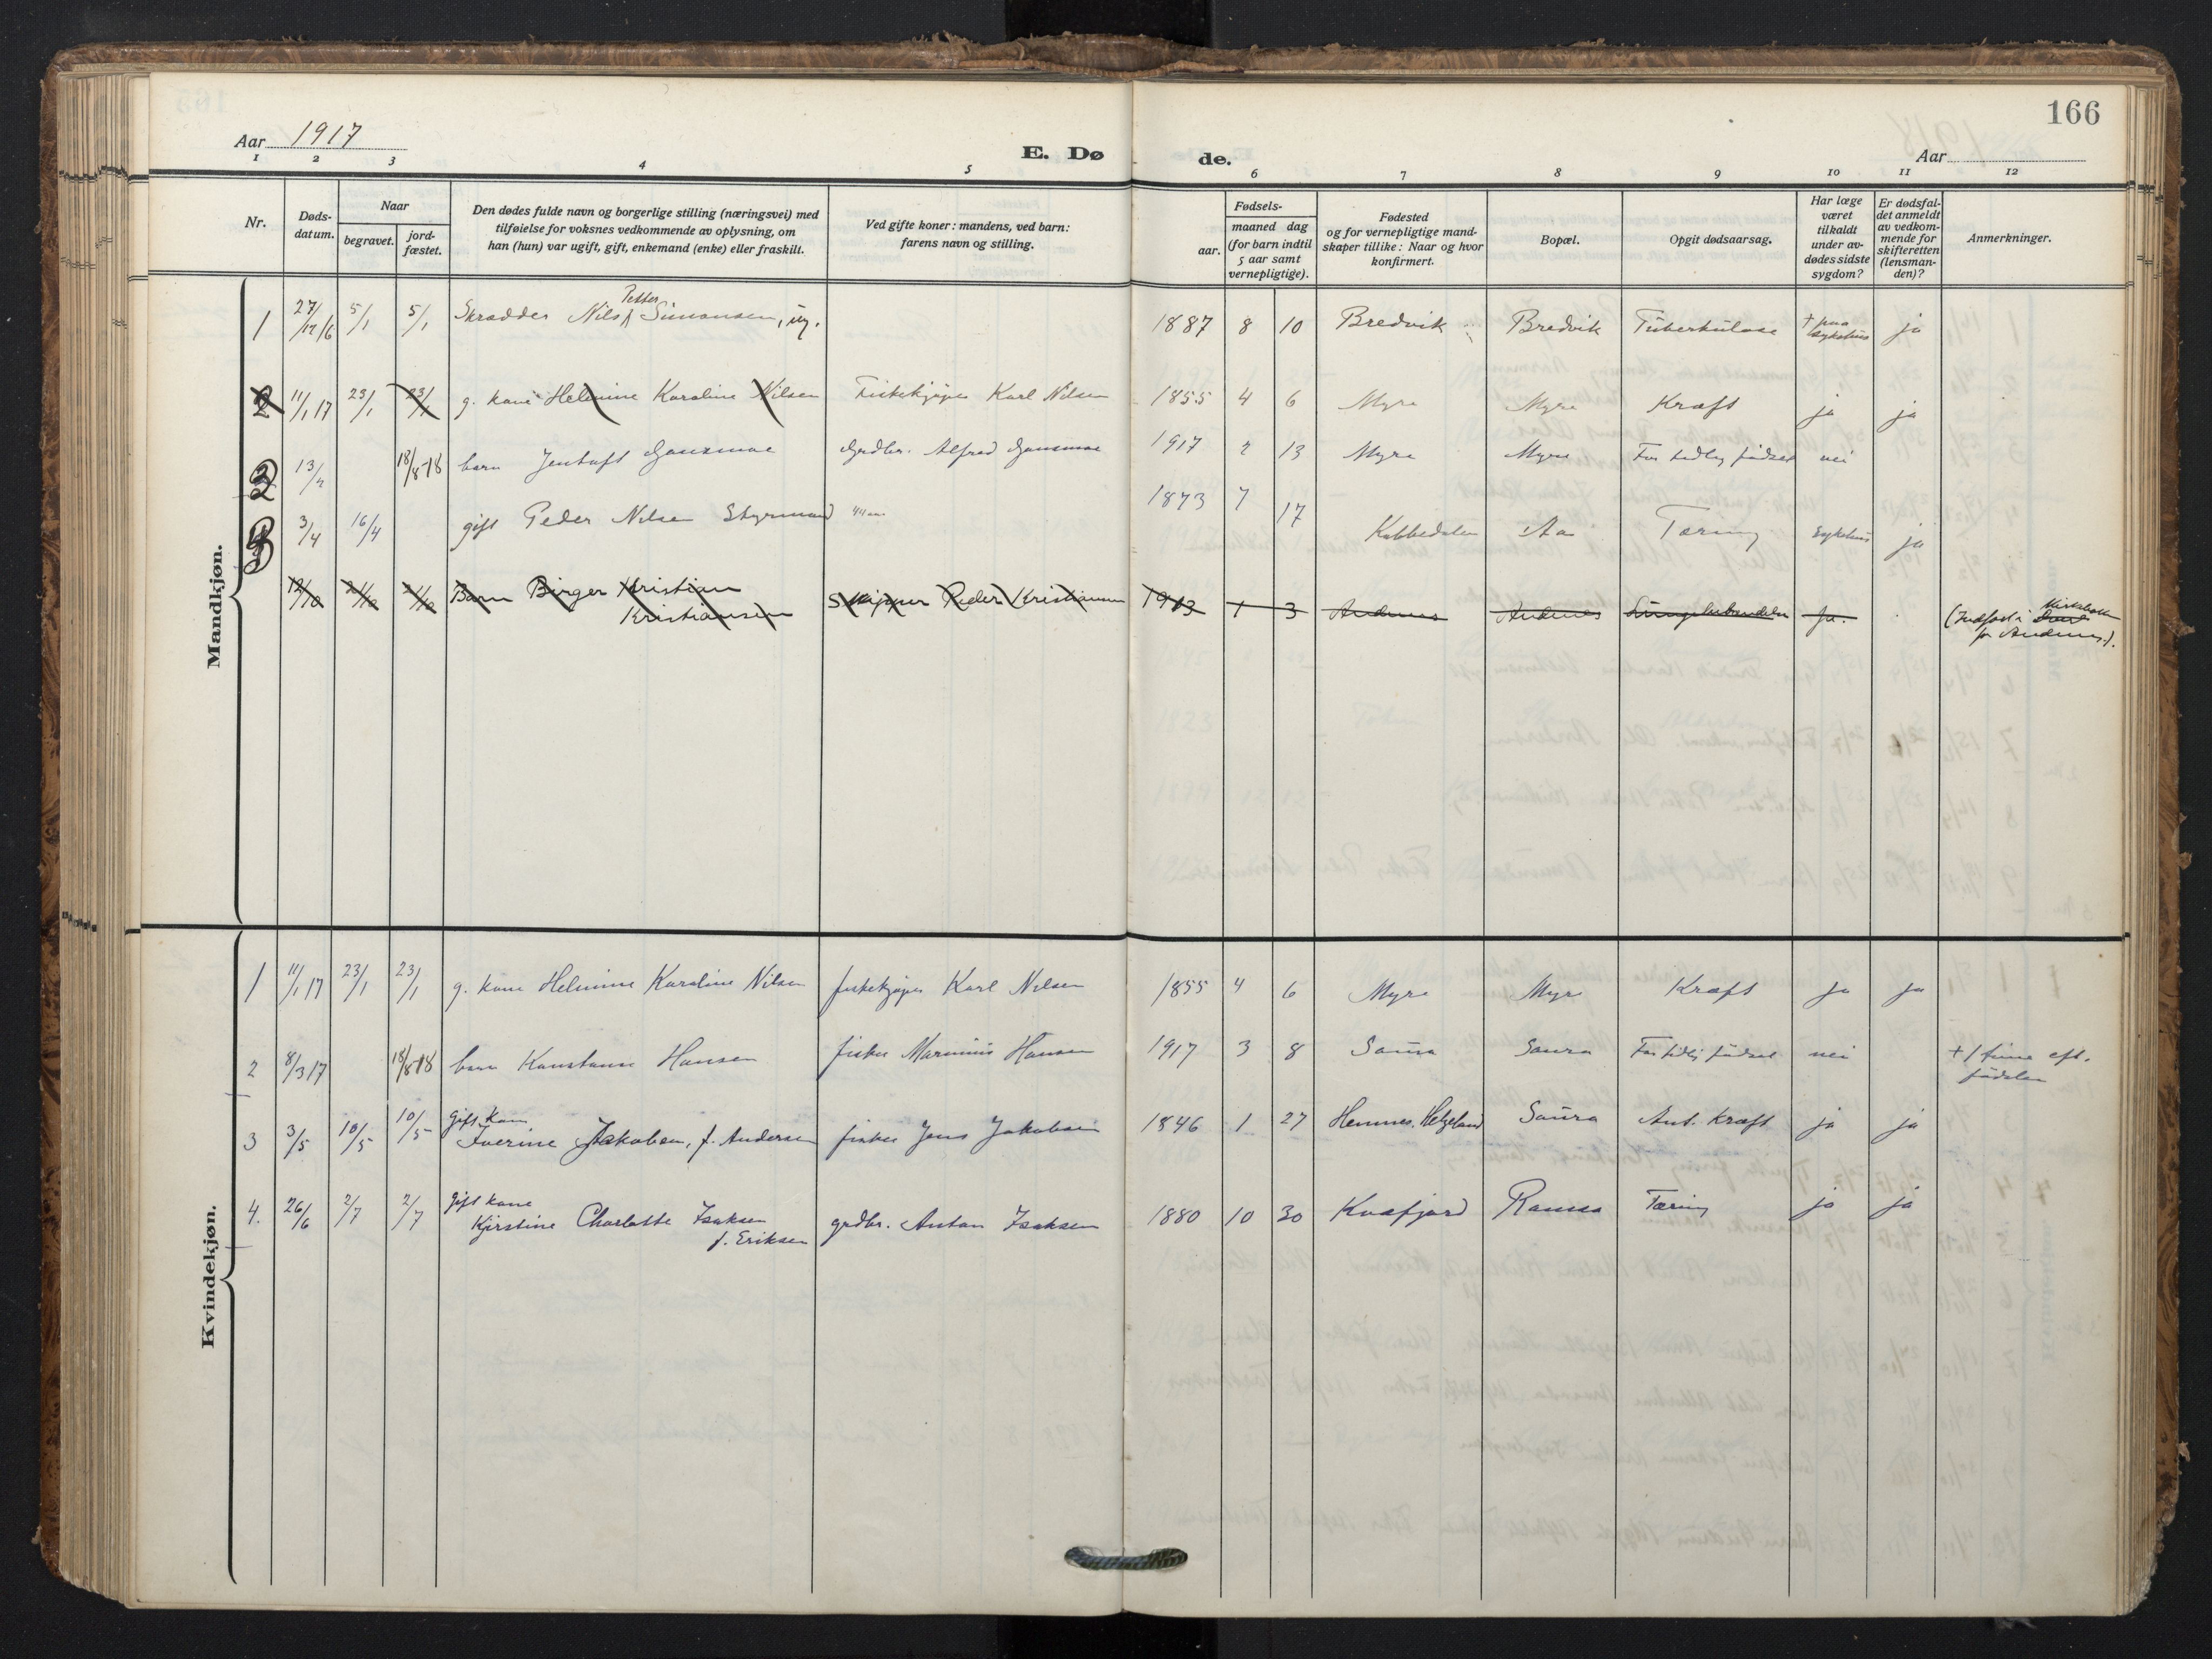 166
Aar 1917
E. Dø de.
Aar
1 2 3 4 5 6 7 8 9 10 11 12
Nr.
Døds-
datum.
Naar
begravet.
jord-
fæstet.
Den dødes fulde navn og borgerlige stilling (næringsvei) med
tilføielse for voksnes vedkommende av oplysning, om
han (hun) var ugift, gift, enkemand (enke) eller fraskilt.
Ved gifte koner: mandens, ved barn:
farens navn og stilling.
Fødsels-
aar.
maaned dag
(for barn indtil
5 aar samt
vernepligtige).
Fødested
og for vernepligtige mand-
skaper tillike: Naar og hvor
konfirmert.
Bopæl.
Opgit dødsaarsag.
Har læge
været
tilkaldt
under av-
dødes sidste
sygdom?
Er dødsfal-
det anmeldt
av vedkom-
mende for
skifteretten
(lensman-
den)?
Anmerkninger.
Mandkjøn.
1 27/12/6 5/1 5/1 Skrædder Nils Petter Simonsen, ug. 1887 8 10 Bredvik Bredvik Tuberkulose + paa sykehus ja
2 11/1 17 23/1 23/1 g. kone Helmine Karoline Nilsen Fiskekjøper Karl Nilsen 1855 4 6 Myre Myre Kræft ja ja
2 13/2 18/8-18 barn Jentoft Gausmoe Grdbr. Alfred Gausmoe 1917 2 13 Myre Myre For tidlig fødsel nei
3 3/4 16/4 gift Peder Nilsen Styrmand 1873 7 17 Kobbedalen Aa Tæring sykehus ja
12/10 21/10 21/10 Barn Birger Kristian
Kristiansen Skipper Peder Kristiansen 1913 1 3 Andenes Andenes Lungebetændelse Ja. (Indført i Kirkebok
for Andenes).
Kvindekjøn.
1 11/1 17 23/1 23/1 g. kone Helmine Karoline Nilsen fiskekjøper Karl Nilsen 1855 4 6 Myre Myre Kræft ja ja
2 8/3 17 18/8-18 barn Konstanse Hansen fisker Marinius Hansen 1917 3 8 Saura Saura For tidlig fødsel nei + 1 time eft.
fødslen
3 3/5 10/5 10/5 Gift kone
Iverine Jakobsen, f. Andersen fisker Jens Jakobsen 1846 1 27 Hemnes. Helgeland Saura Ant. kræft ja ja
4. 26/6 2/7 2/7 Gift kone
Kjerstine Charlotte Isaksen
f. Eriksen grdbr. Anton Isaksen 1880 10 30 Kvæfjord Ramsa Tæring ja ja